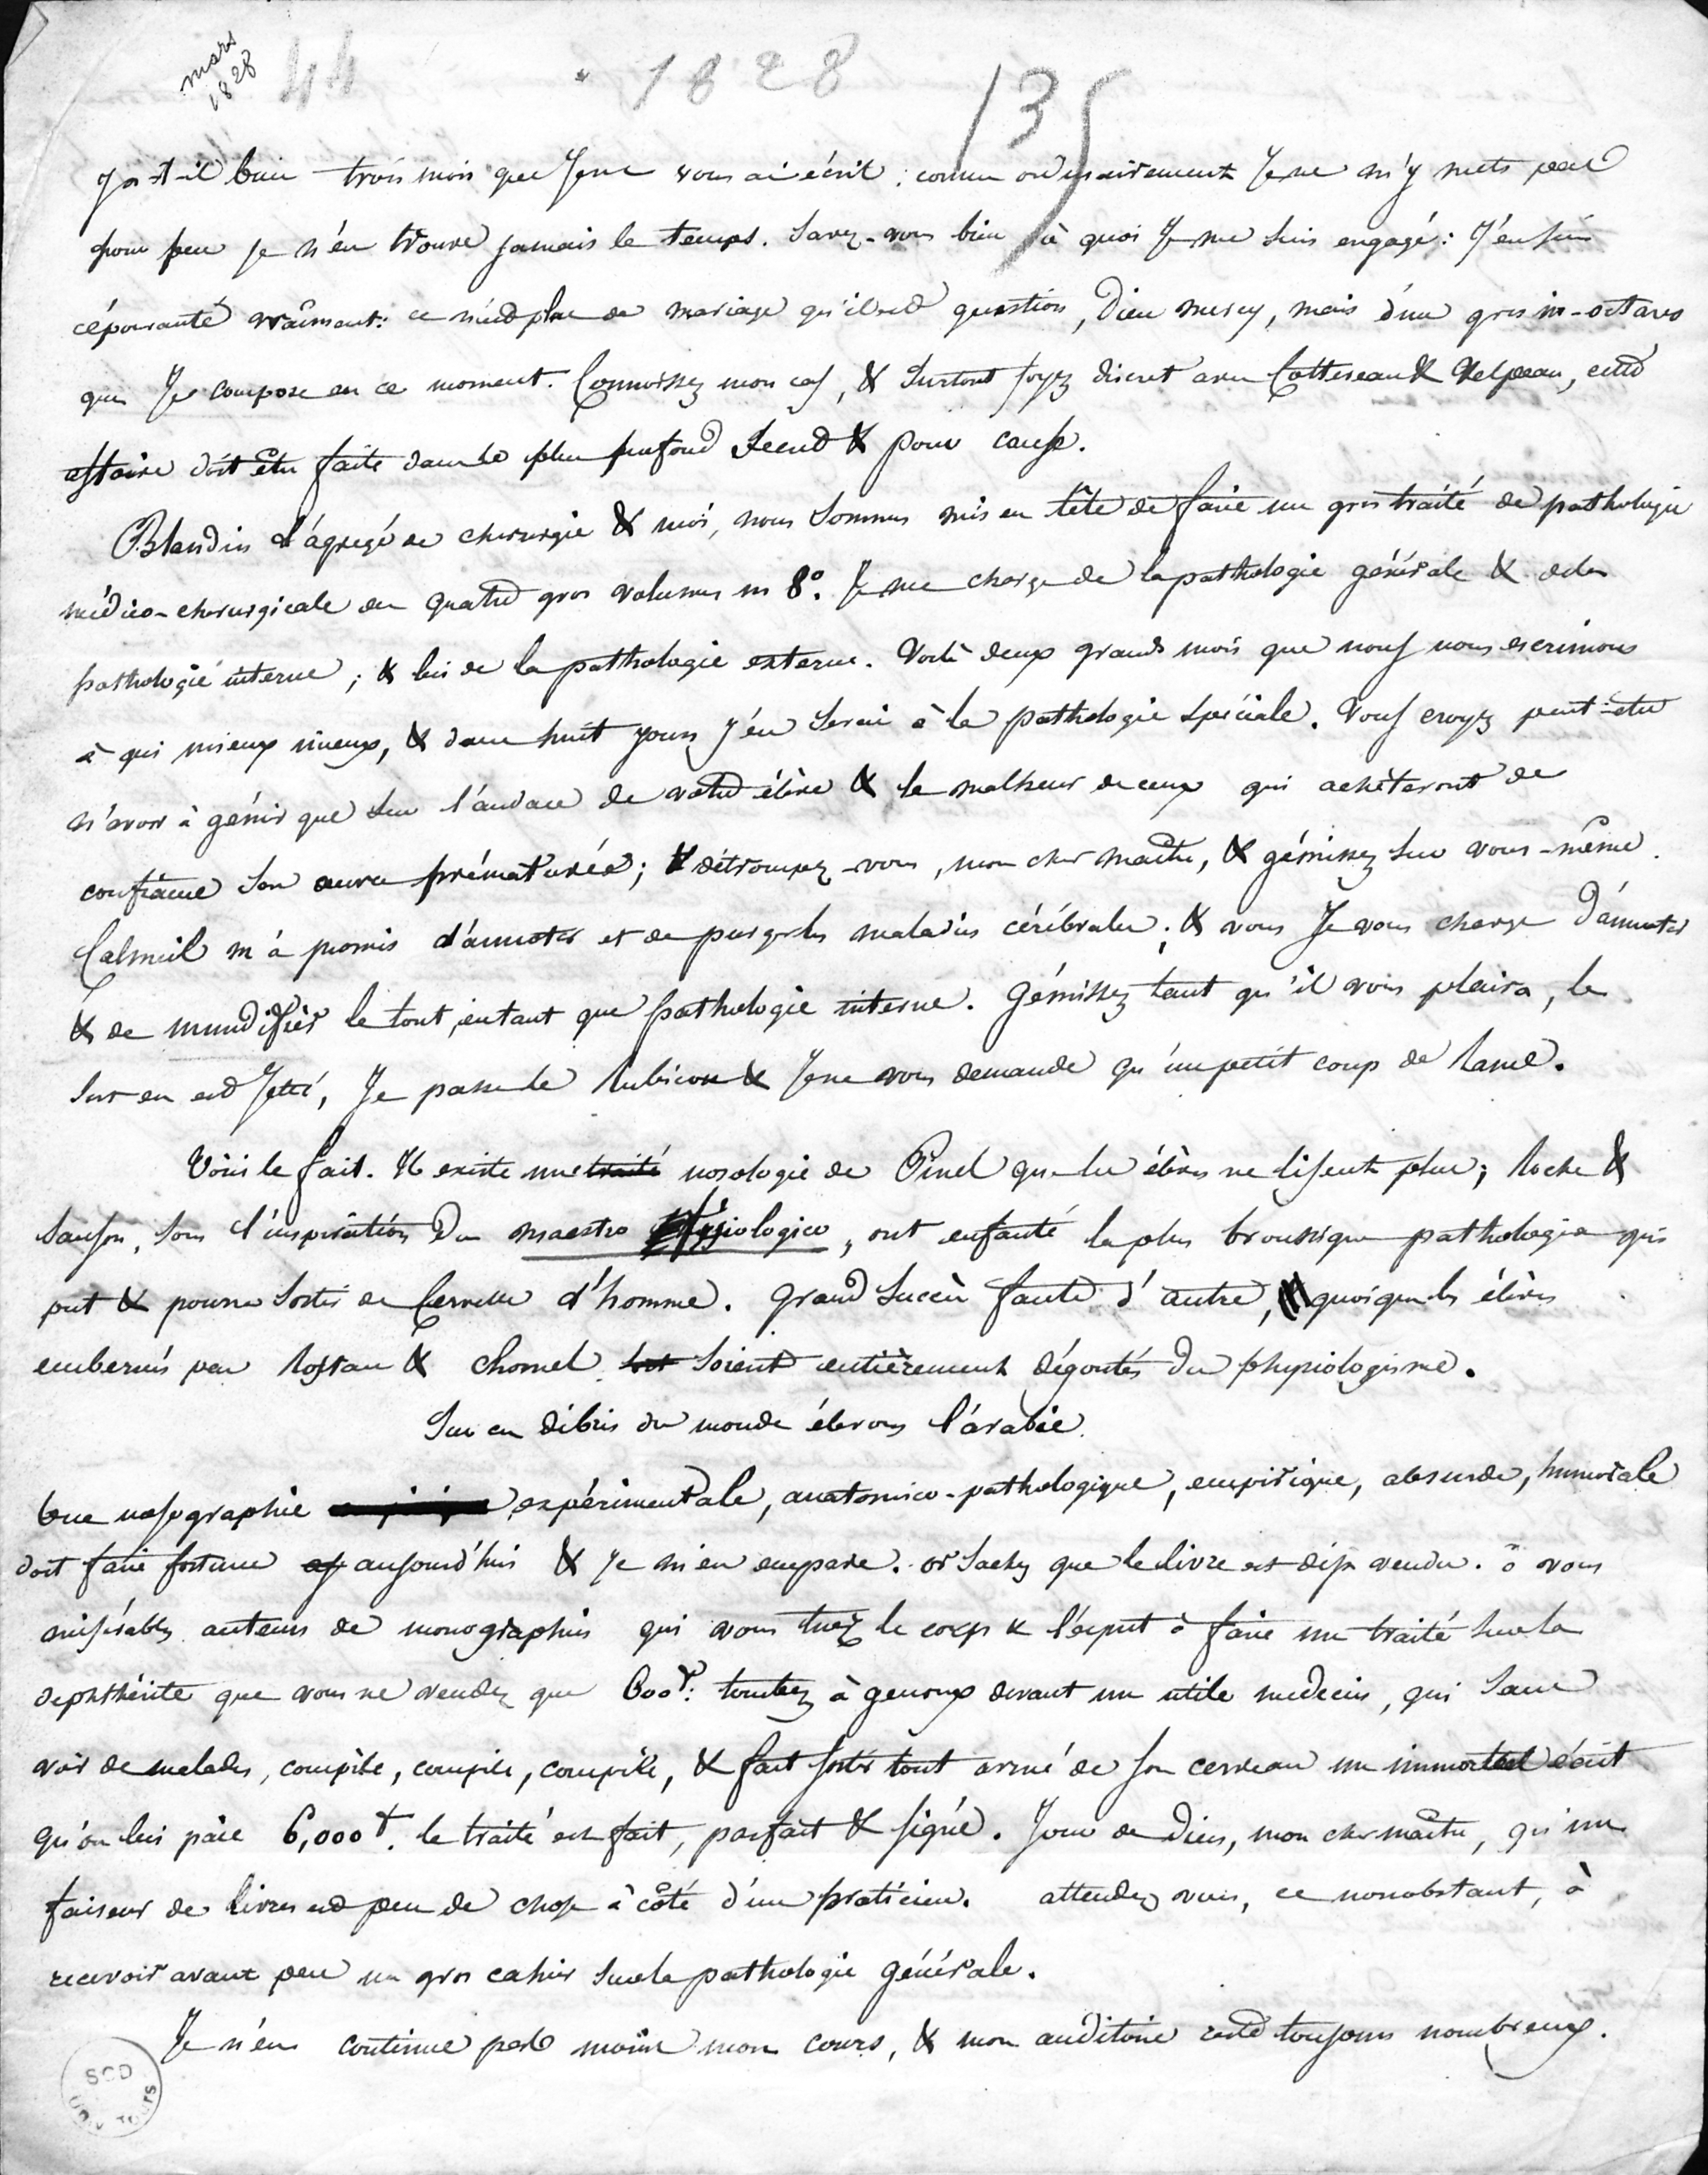 mars
1828
44
1828
135
Y a-t-il bien trois mois que Je ne vous ai écrit : comme ordinairement Je ne m'y mets pas
pour peu je n'en trouve jamais le temps. Savez-vous bien à quoi Je me suis engagé : J'en suis
épouvanté vraîment : ce n'est plus de mariage qu'il est question, Dieu mercy, mais d'un gros in-octavo
que Je compose en ce moment. Connoissez mon cas, & surtout soyez discret avec Cottereau & Velpeau, cette
affaire doit être faite dans le plus profond Secret & pour cause.
Blandin l'ágrégé de chirurgie & moi, nous sommes mis en tête de faire un gros traité de pathologie
médico-chirurgicale en quatre gros volumes in 8º. Je me charge de la pathologie générale & de la
pathologie interne ; & lui de la pathologie externe. Voilà deux grands mois que nous nous escrimons
à qui mieux mieux, & dans huit jours j'en serai à la pathologie spéciale. Vous croyez peut-être
n'avoir à gémir que sur l'audace de votre élève & le malheur de ceux qui achèteront de
confiance son œuvre prématurée ; & détrompez-vous, mon cher maître, & gémissez sur vous-même.
Calmeil m'a promis d'annoter et de purger les maladies cérébrales ; & vous Je vous charge d'annoter
& de mundifier le tout, en tant que pathologie interne. Gémissez tant qu'il vous plaira, le
sort en est Jetté, Je passe le Rubicon & Je ne vous demande qu'un petit coup de rame.
Voici le fait. Il existe une traité nosologie de Pinel que les élèves ne lisent plus ; Roche &
Sanson, sous l'inspiration du maestro fisiologico, ont enfanté la plus broussique pathologie qui
put & pourra sortir de Cervelle d'homme. Grand Succès faute d'autre, quoique les élèves
embernés par Rostan & Chomel soient entièrement dégoutés du physiologisme.
Sur ces débris du monde élevons l'arabie.
Une nosographie expérimentale, anatomico-pathologique, empirique, absurde, humorale
doit faire fortune aujourd'hui & je m'en empare. or sachez que le livre est déja vendu. ô vous
misérables auteurs de monographies qui vous tuez le corps & l'esprit à faire un traité sur la
dephthérite que vous ne vendez que 600 : tombez à genoux devant un utile médecin, qui sans
voir de malades, compile, compile, compile, & fait sortir tout armé de son cerveau un immortel écrit
qu'on lui paie 6,000. le traité est fait, parfait & signé. Jour de Dieu, mon cher maître, qu'un
faiseur de livres est peu de chose à côté d'un praticien. attendez vous, ce nonobstant, à
recevoir avant peu un gros cahier sur la pathologie générale.
Je n'en continue pas moins mon cours, & mon auditoire reste toujours nombreux.
SCD
UNIV TOURS